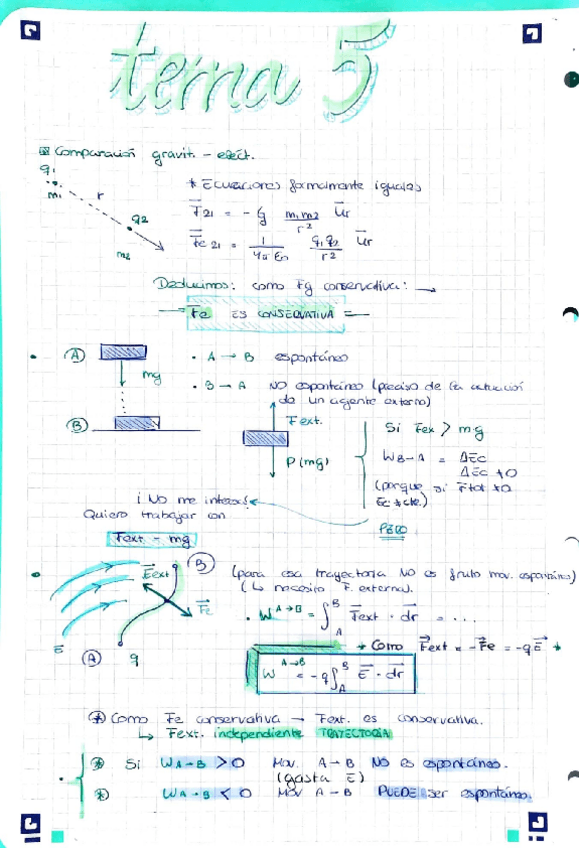 tema 5
Comparación gravit. - eléct.
q1
m1
r
q2
m2
* Ecuaciones formalmente iguales
F21 = - G m1 m2 / r² ur
Fe21 = 1 / 4π ε0 q1 q2 / r² ur
Deducimos: como Fg conservativa: →
Fe ES CONSERVATIVA
A
mg
B
• A → B espontáneo
• B → A NO espontáneo (preciso de la actuación
de un agente externo)
Fext.
P (mg)
Si Fex > m·g
WB→A = ΔEc
ΔEc ≠ 0
(porque si Ftot ≠ 0
Ec ≠ cte.)
PERO
¡No me interesa!
Quiero trabajar con
Fext = mg
E
A
q
B
Fext
Fe
(para esa trayectoria NO es fruto mov. espontáneo)
(↳ necesito F. externa).
• W A→B = ∫ A B Fext · dr = ...
* Como Fext = -Fe = -qE *
W A→B = -q ∫ A B E · dr
* Como Fe conservativa → Fext. es conservativa.
↳ Fext. independiente TRAYECTORIA
* Si WA→B > 0 Mov. A→B NO es espontáneo.
(gasta E)
* WA→B < 0 Mov A→B PUEDE ser espontáneo.